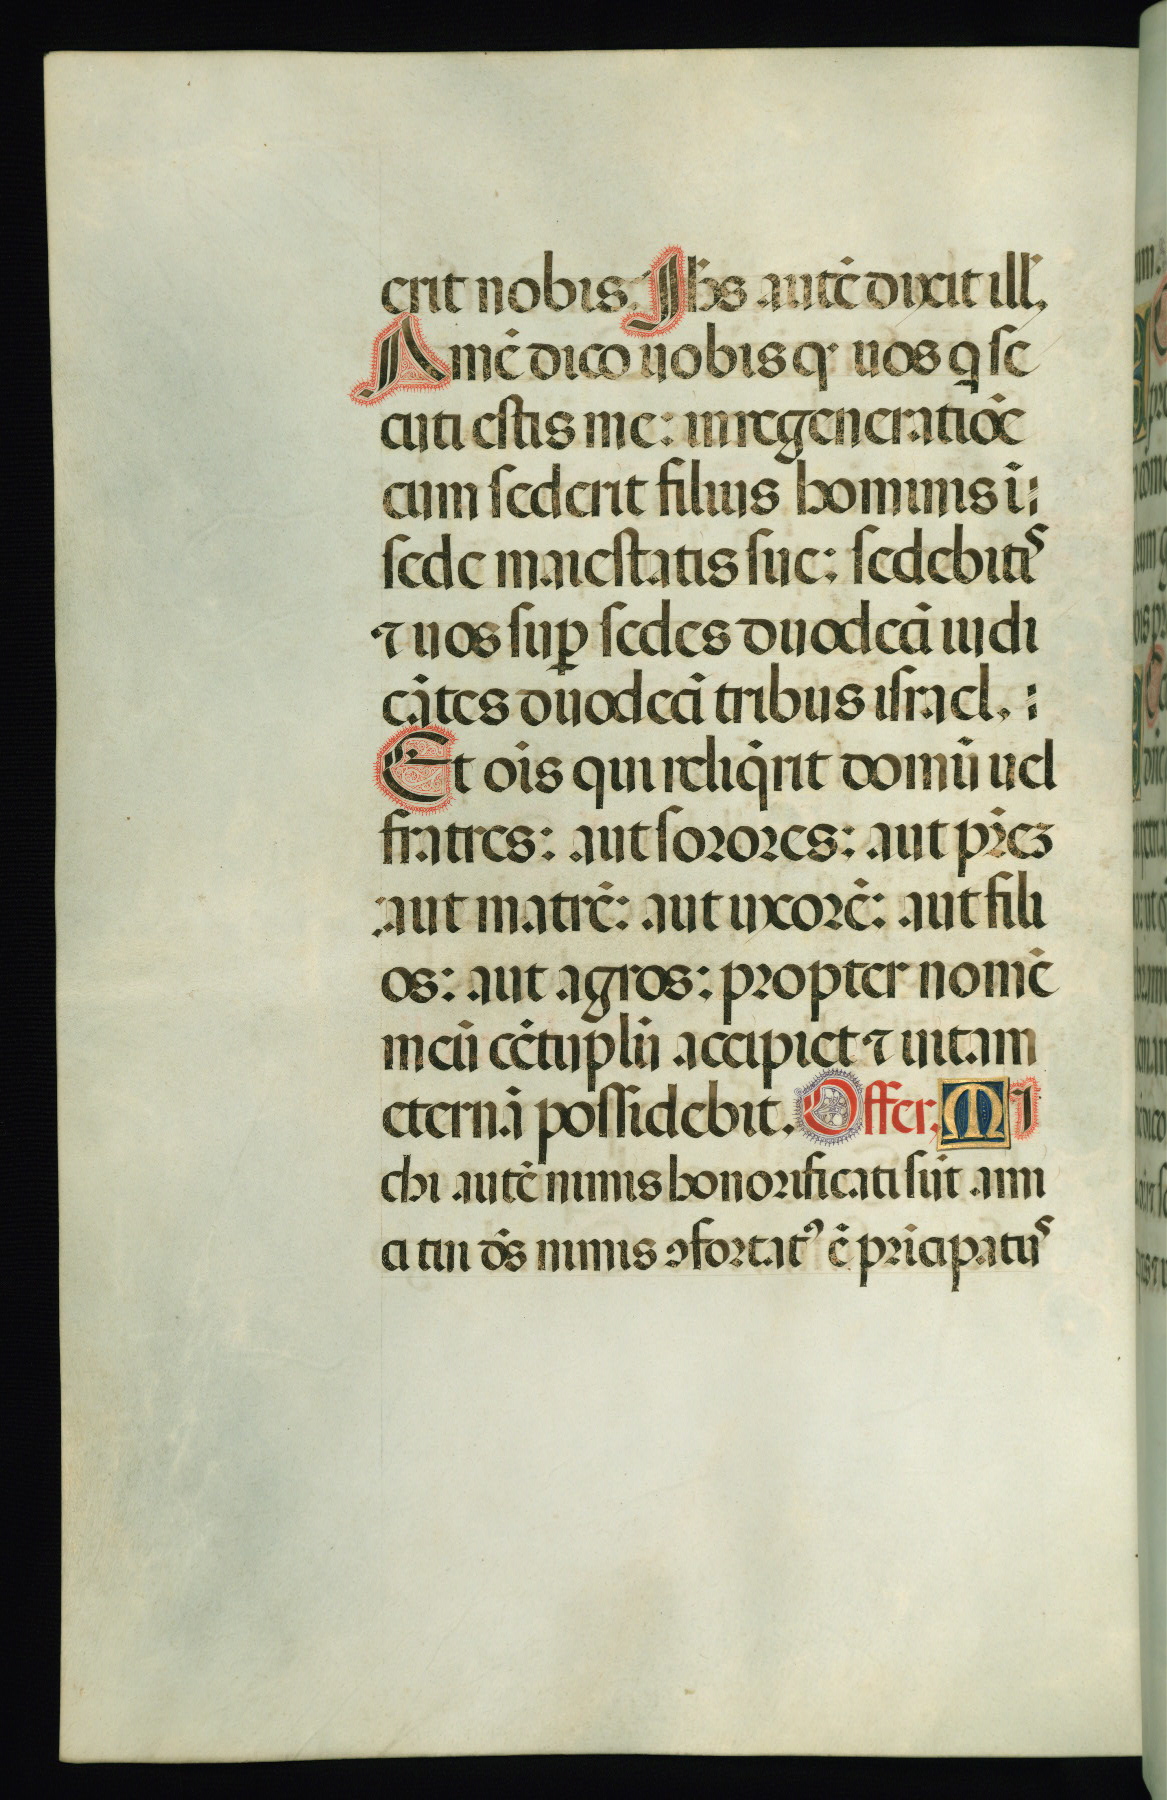 erit nobis. Ihs autē dixit ill̄.
Amē dico uobis q̄ uos q̄ se
cuti estis me: in regeneratiōe
cum sederit filius hominis ī:
sede maiestatis sue: sedebitis
⁊ uos suꝑ sedes duodecī iudi
cātes duodecī tribus israel. :
Et oīs qui reliq̄rit domū uel
fratres: aut sorores: aut pr̄eꝫ
aut matrē: aut uxorē: aut fili
os: aut agros: propter nomē
meū cētuplū accipiet ⁊ uitam
eternā possidebit. Offer. MI
chi autē nimis honorificati sūt ami
ci tui ds̄ nimis ꝯfortatꝰ ē prīcipatus